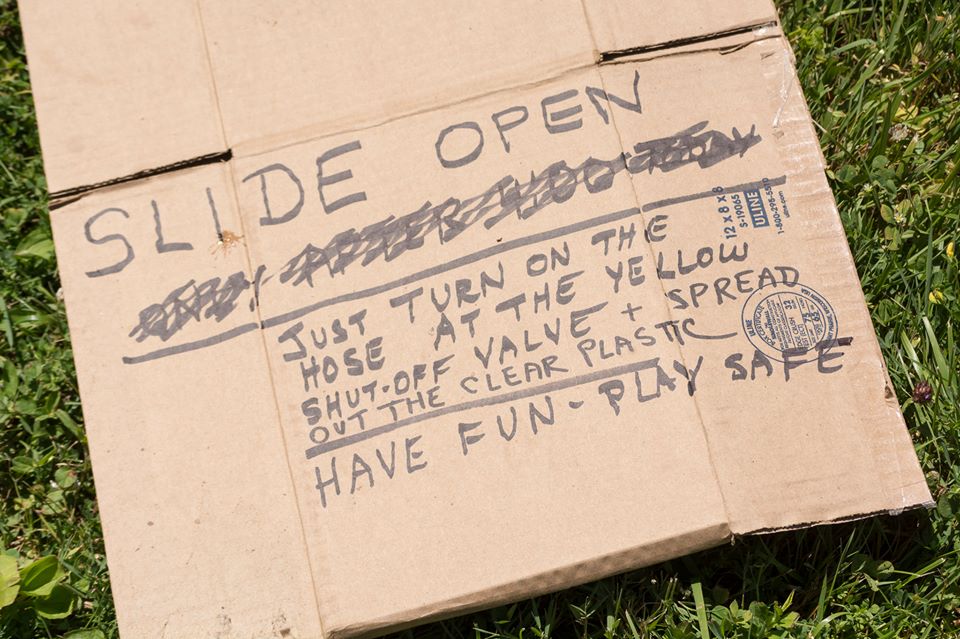 SLIDE OPEN
AFTER
JUST TURN ON THE
HOSE AT THE YELLOW
SHUT-OFF VALVE + SPREAD
OUT THE CLEAR PLASTIC
HAVE FUN - PLAY SAFE
12 X 8 X 8
S-19065
ULINE
1-800-295-5510
uline.com